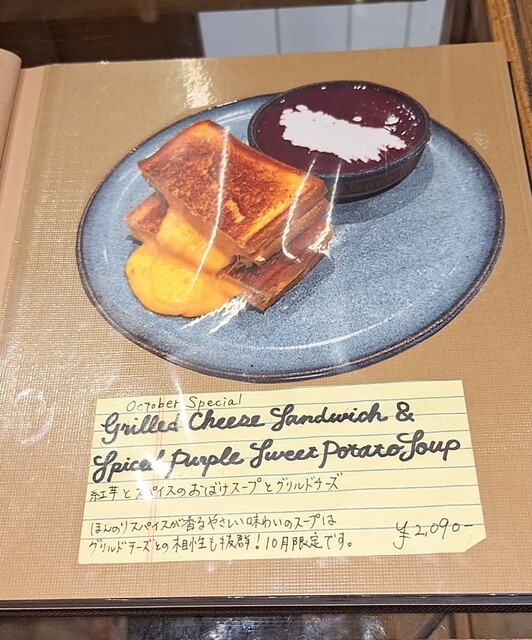 October Special
Grilled Cheese Sandwich &
Spiced Purple Sweet Potato Soup
紅芋とスパイスのおばけスープとグリルドチーズ
ほんのりスパイスが香るやさしい味わいのスープは
グリルドチーズとの相性も抜群！10月限定です。
¥2,090-